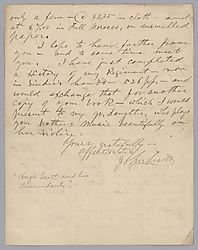 only a few — @ $3.25 in cloth — and
at $7.00 in full morocco, on enamelled
paper.
I hope to hear further from
you — and to some time meet
you. I have just completed
a history of my Regiment — now
in binder's hands — 528 pp., — and
would exchange that for another
copy of your book — which I would
present to my daughter, who plays
your Father's music beautifully on
her violin.
Yours gratefully —
affectionately
"Hugh Scott and his